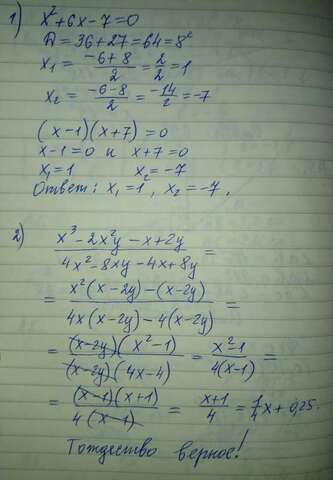 1) x²+6x-7=0
D=36+27=64=8²
x₁ = (-6+8)/2 = 2/2 = 1
x₂ = (-6-8)/2 = -14/2 = -7
(x-1)(x+7)=0
x-1=0 и x+7=0
x₁=1 x₂=-7
Ответ: x₁=1, x₂=-7.
2) (x³-2x²y-x+2y)/(4x²-8xy-4x+8y) =
= (x²(x-2y)-(x-2y))/(4x(x-2y)-4(x-2y)) =
= ((x-2y)(x²-1))/((x-2y)(4x-4)) = (x²-1)/(4(x-1)) =
= ((x-1)(x+1))/(4(x-1)) = (x+1)/4 = 1/4x+0,25.
Тождество верное!